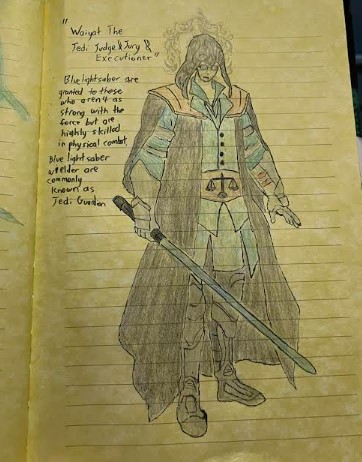 "Waiyat The
Jedi Judge & Jury &
Executioner"
Blue lightsaber are
granted to those
who aren't as
strong with the
force but are
highly skilled
in physical combat.
Blue lightsaber
wielder are
commonly
known as
Jedi Guardian